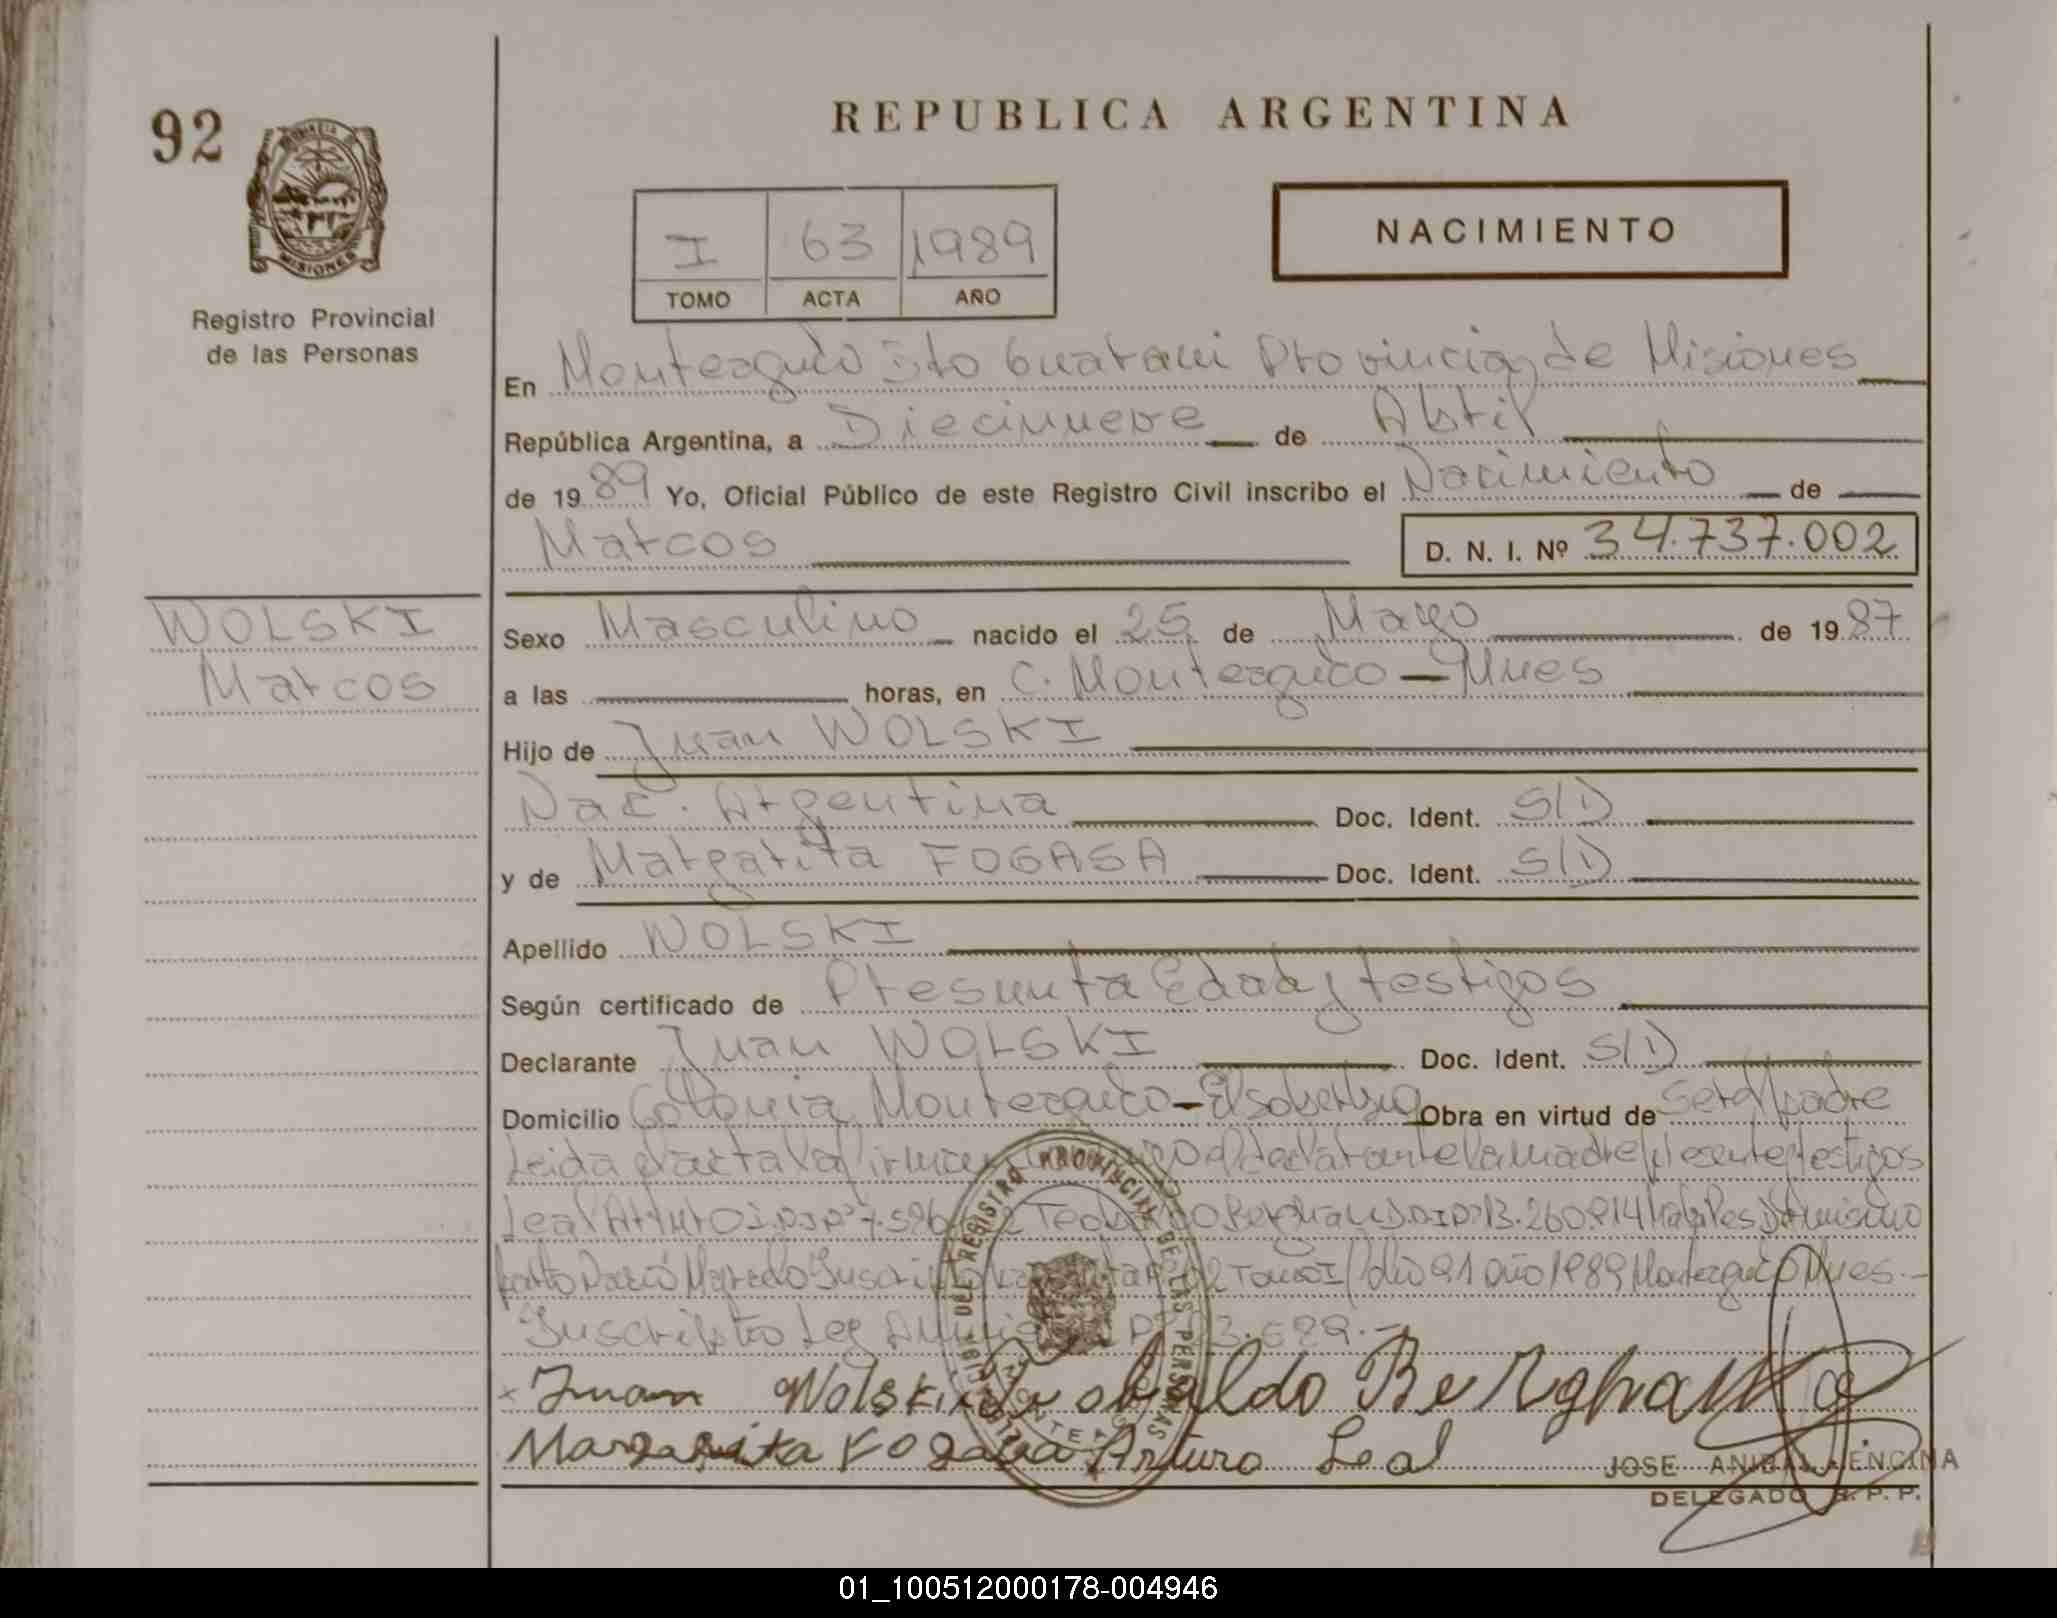 92
REPUBLICA ARGENTINA
PROVINCIA DE
MISIONES
Registro Provincial
de las Personas
I 63 1989
TOMO ACTA AÑO
NACIMIENTO
En Monteagudo Dto Guarani Provincia de Misiones
República Argentina, a Diecinueve de Abril
de 1989 Yo, Oficial Público de este Registro Civil inscribo el Nacimiento de
Marcos
D. N. I. Nº 34.737.002
WOLSKI
Marcos
Sexo Masculino nacido el 25 de Mayo de 1987
a las horas, en C. Monteagudo - Mnes
Hijo de Juan WOLSKI
Nac. Argentina Doc. Ident. S/D
y de Margarita FOGASA Doc. Ident. S/D
Apellido WOLSKI
Según certificado de Presunta Edad y testigos
Declarante Juan WOLSKI Doc. Ident. S/D
Domicilio Colonia Monteagudo - El Soberbio Obra en virtud de ser el padre
Leida el acta la firman conmigo el declarante la madre presente y testigos
Leal Arturo D.N.I. Nº 7.596 Teobaldo Berghan D.N.I. Nº 13.260.914 habiles Del mismo
parto Nació Inscripto Acta Nº 62 Tomo I folio 91 año 1989 Monteagudo Mnes.-
Inscripto Ley Nº 23.
Juan Wolski Teobaldo Berghan
Margarita Fogasa Arturo Leal
JOSE ANIBAL ENCINA
DELEGADO R. P. P.
REGISTRO PROVINCIAL DE LAS PERSONAS
01_100512000178-004946